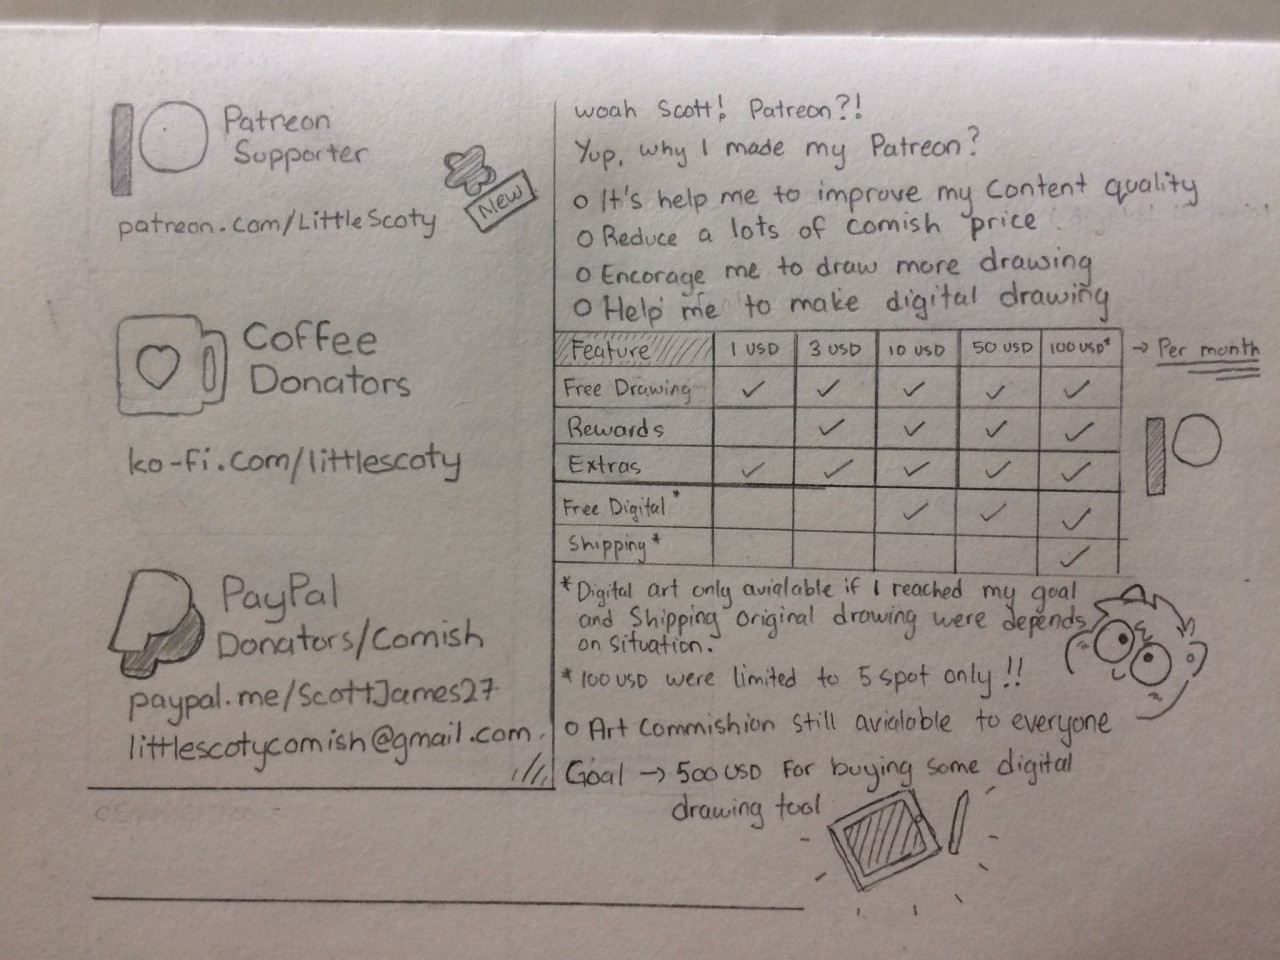 Patreon
Supporter
New
patreon.com/LittleScoty
Coffee
Donators
ko-fi.com/littlescoty
PayPal
Donators/Comish
paypal.me/ScottJames27
littlescotycomish@gmail.com
woah Scott! Patreon?!
Yup, why I made my Patreon?
o It's help me to improve my content quality
o Reduce a lots of comish price
o Encorage me to draw more drawing
o Help me to make digital drawing
Feature 1 USD 3 USD 10 USD 50 USD 100 USD* → Per month
Free Drawing ✓ ✓ ✓ ✓ ✓
Rewards ✓ ✓ ✓ ✓
Extras ✓ ✓ ✓ ✓ ✓
Free Digital* ✓ ✓ ✓
Shipping* ✓
* Digital art only avialable if I reached my goal
and Shipping original drawing were depends
on situation.
* 100 USD were limited to 5 spot only !!
o Art Commishion still avialable to everyone
Goal → 500 USD For buying some digital
drawing tool